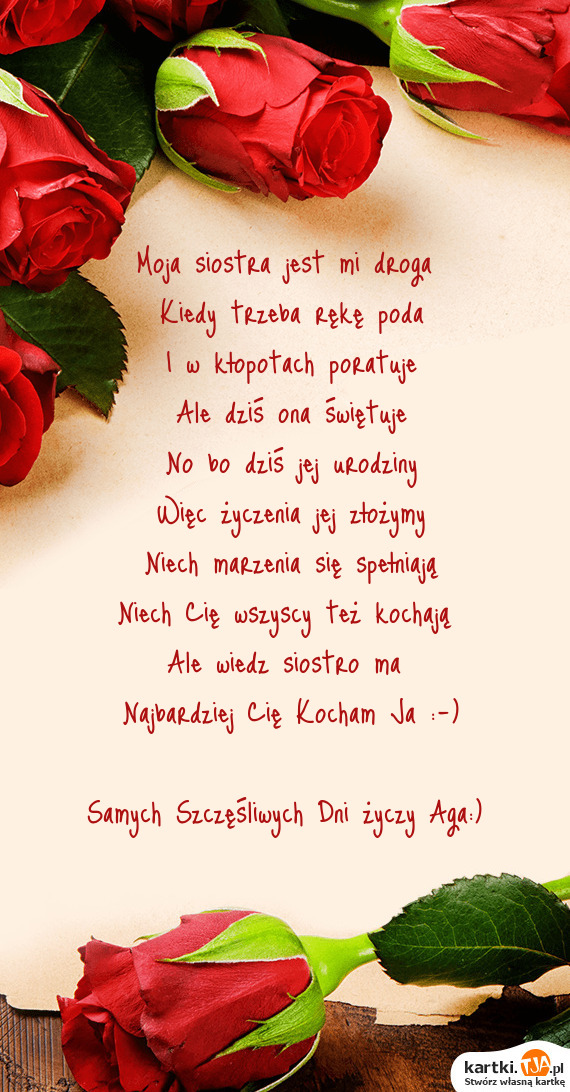 Moja siostra jest mi droga
Kiedy trzeba rękę poda
I w kłopotach poratuje
Ale dziś ona świętuje
No bo dziś jej urodziny
Więc życzenia jej złożymy
Niech marzenia się spełniają
Niech Cię wszyscy też kochają
Ale wiedz siostro ma
Najbardziej Cię Kocham Ja :-)
Samych Szczęśliwych Dni życzy Aga:)
kartki.TJA.pl
Stwórz własną kartkę